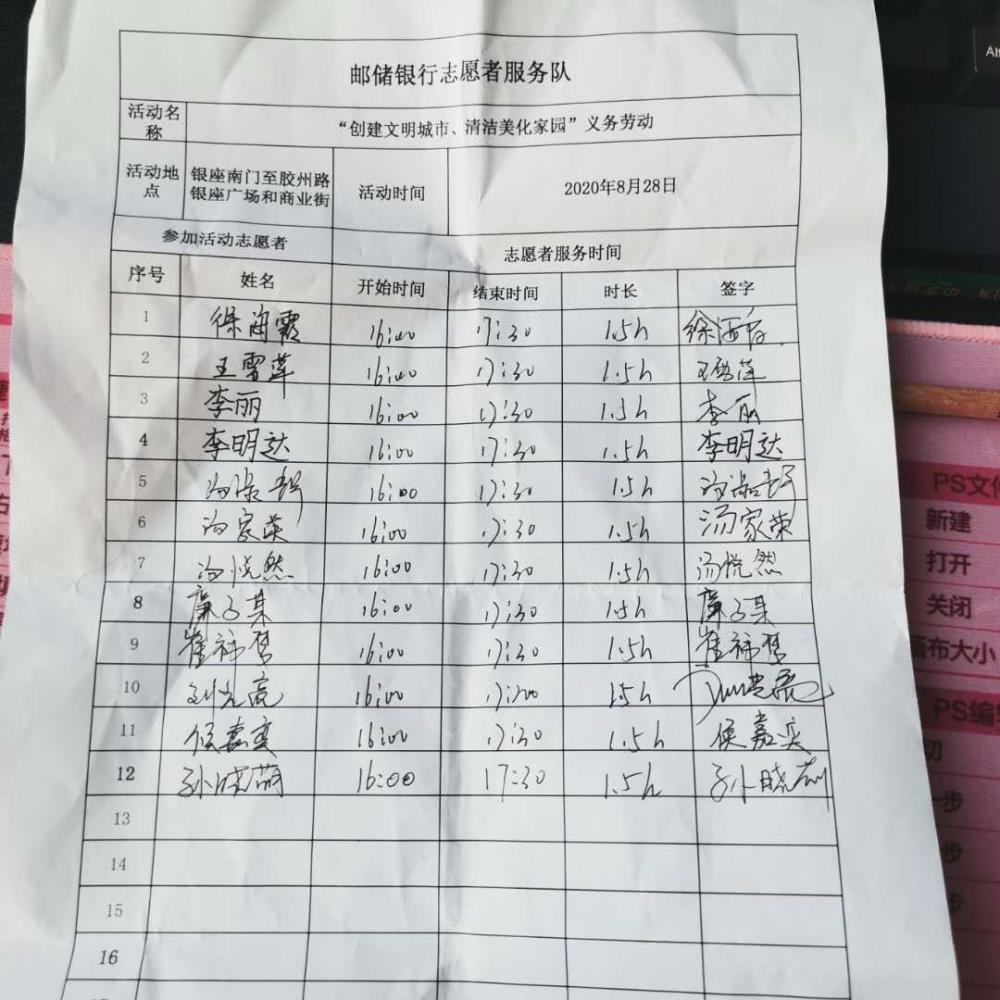 邮储银行志愿者服务队
活动名称 “创建文明城市、清洁美化家园”义务劳动
活动地点 银座南门至胶州路银座广场和商业街 活动时间 2020年8月28日
参加活动志愿者 志愿者服务时间
序号 姓名 开始时间 结束时间 时长 签字
1 徐海霞 16:00 17:30 1.5h 徐海霞
2 王雪萍 16:00 17:30 1.5h 王雪萍
3 李丽 16:00 17:30 1.5h 李丽
4 李明达 16:00 17:30 1.5h 李明达
5 16:00 17:30 1.5h
6 汤家荣 16:00 17:30 1.5h 汤家荣
7 汤悦然 16:00 17:30 1.5h 汤悦然
8 16:00 17:30 1.5h
9 16:00 17:30 1.5h
10 16:00 1.5h
11 16:00 17:30 1.5h 侯嘉奕
12 16:00 17:30 1.5h
13
14
15
16
Alt
PS文件
新建
打开
关闭
画布大小
PS编辑
切
一步
步
步